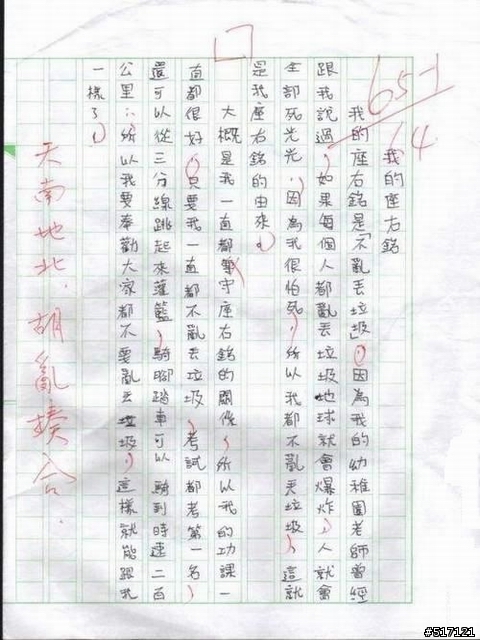 65-1
64
我的座右銘
我的座右銘是「不亂丟垃圾」。因為我的幼稚園老師曾經
跟我說過，如果每個人都亂丟垃圾地球就會爆炸，人就會
全部死光光，因為我很怕死，所以我都不亂丟垃圾，這就
是我座右銘的由來。
大概是我一直都篤守座右銘的關係，所以我的功課一
直都很好，只要我一直都不亂丟垃圾，考試都考第一名，
還可以從三分線跳起來灌籃，騎腳踏車可以騎到時速二百
公里，所以我要奉勸大家都不要亂丟垃圾，這樣就能跟我
一樣了。
天南地北，胡亂揍合。
#517121